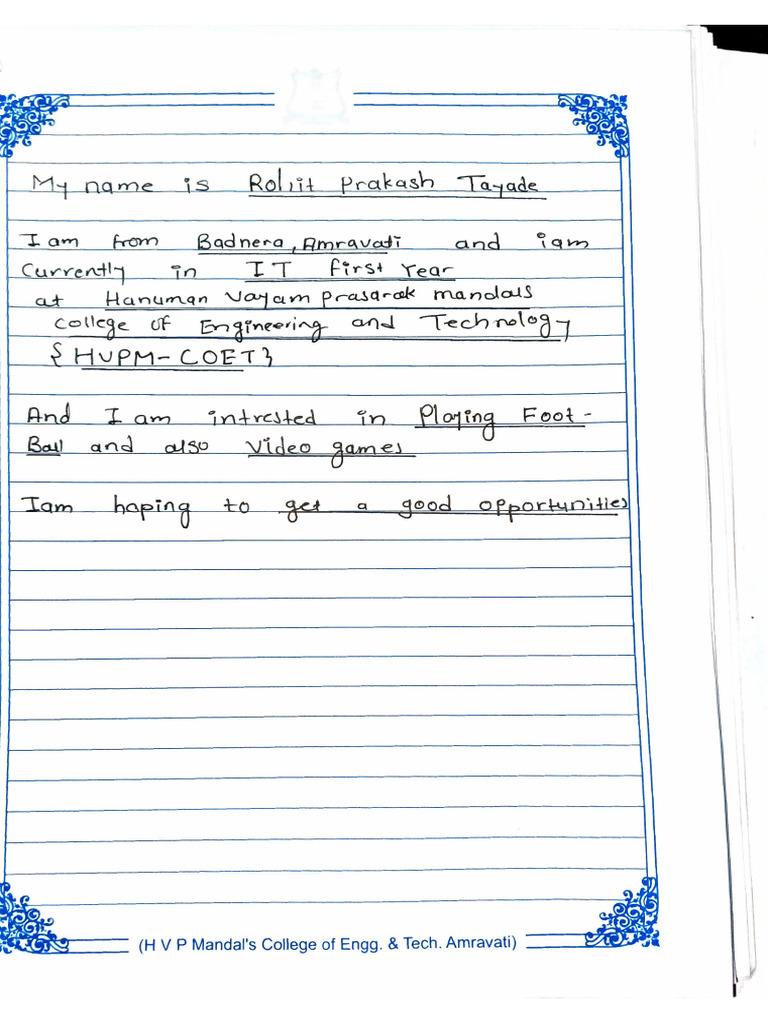 My name is Rohit Prakash Tayade
I am from Badnera, Amravati and iam
Currently in IT first Year
at Hanuman Vayam prasarak mandals
college of Engineering and Technology
{ HVPM-COET}
And I am intrested in Playing Foot-
Ball and also Video games
Iam hoping to get a good opportunities
(H V P Mandal's College of Engg. & Tech. Amravati)